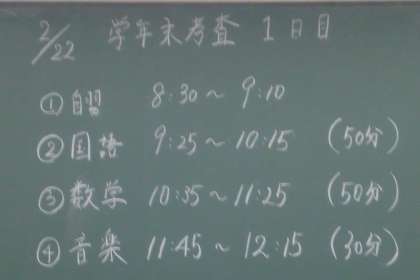 2/22 学年末考査 1日目
① 自習 8:30〜9:10
② 国語 9:25〜10:15 (50分)
③ 数学 10:35〜11:25 (50分)
④ 音楽 11:45〜12:15 (30分)